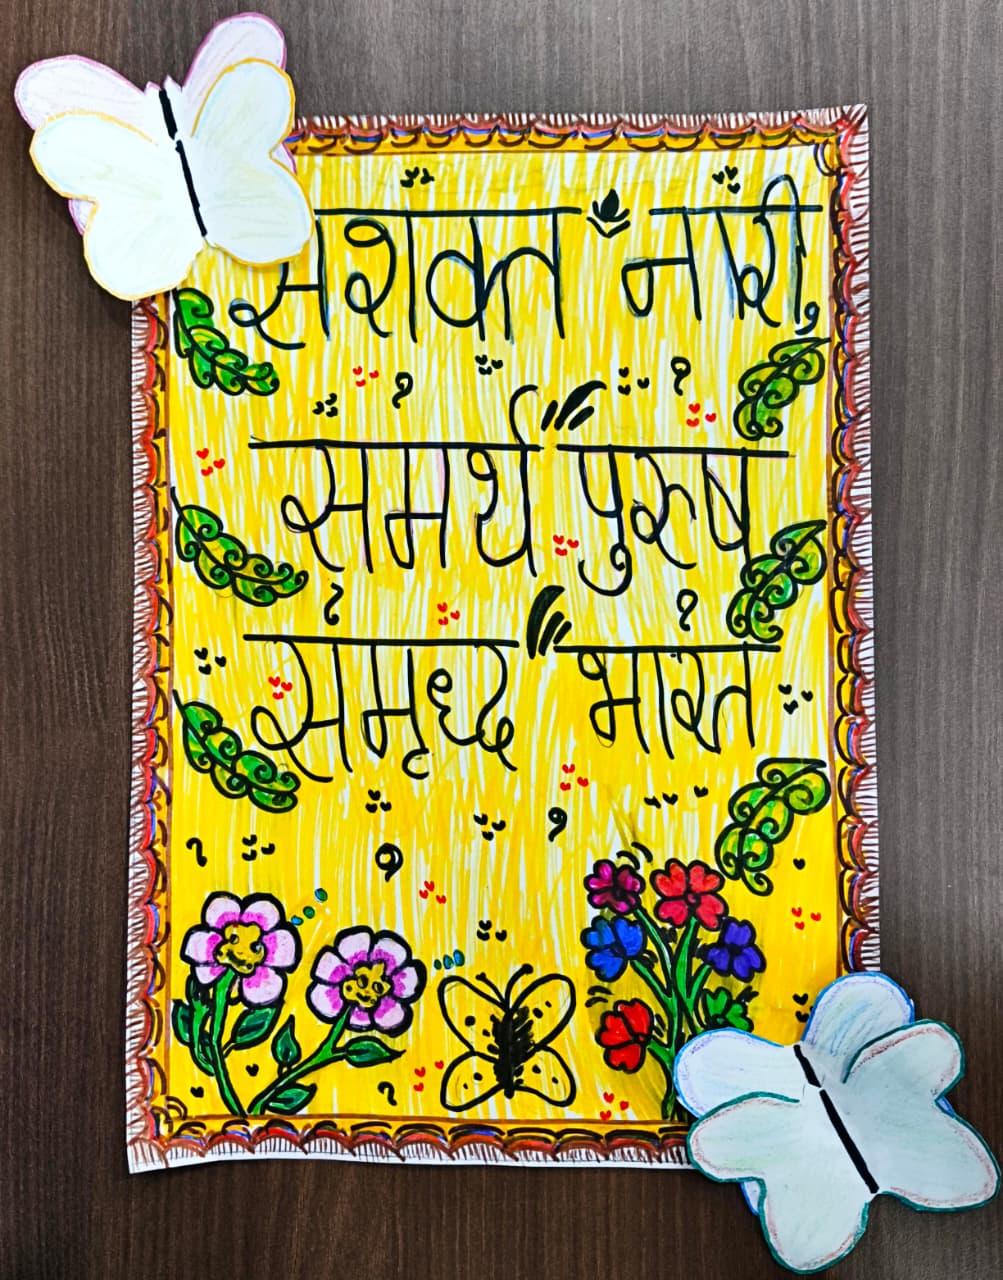 सशक्त नारी,
समर्थ पुरुष
समृध्द भारत